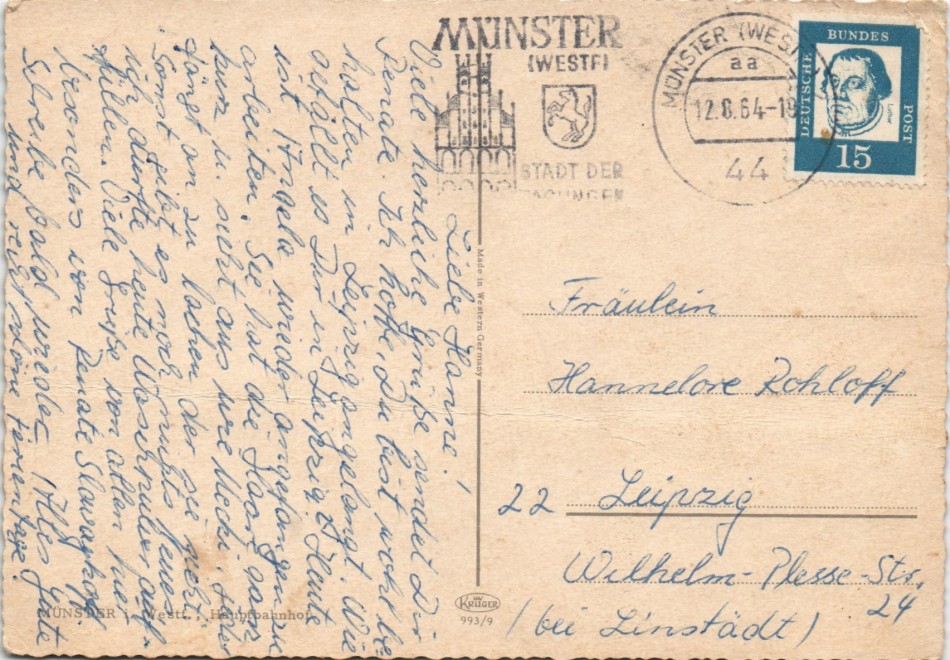 MÜNSTER
(WESTF)
STADT DER
TAGUNGEN
MÜNSTER (WESTF)
aa
12.8.64-18
44
DEUTSCHE
BUNDES
POST
Luther
15
Liebe Hanne!
Viele herzliche Grüße sendet Dir
Renate. Ich hoffe, Du bist wohlbe-
halten in Leipzig angelangt. Wie
gefällt es Dir in Leipzig? Heute
ist Angela wieder angefangen zu
arbeiten. Sie hat die Haare ganz
kurz u. sieht aus wie Mecki. Fuss
fängt an zu lachen der sie sieht.
Sonst gibt es noch nichts Neues
ich dürfte heute Wasserruller auf-
füllen. Viele Grüße von allen hier
besonders von Renate
Schreibe bald wieder. Alles Gute
und recht schöne Ferientage!
Made in Western Germany
Fräulein
Hannelore Rohloff
22 Leipzig
Wilhelm-Plesse-Str.
24
(bei Linstädt)
MÜNSTER i. Westf., Hauptbahnhof
KRÜGER
993/9